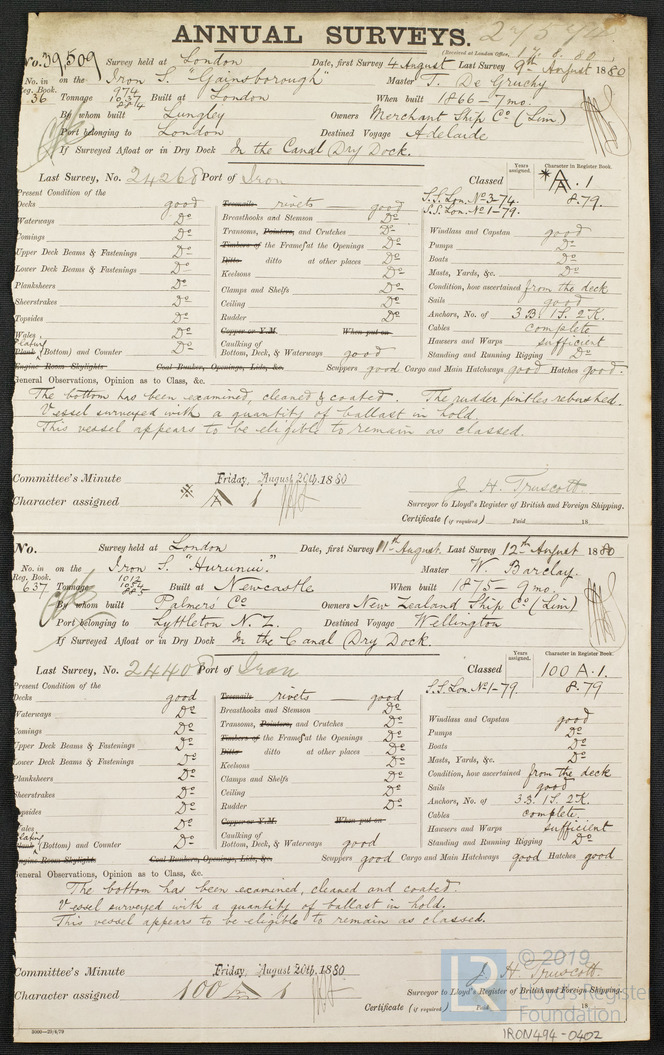 ANNUAL SURVEYS.
(Received at London Office, 17.8.80)
No. 39,509 Survey held at London Date, first Survey 4 August Last Survey 9th August 1880
No. in Reg. Book. 36 on the Iron S. "Gainsborough" Master T. De Gruchy
Tonnage 974 1037 884 Built at London When built 1866 - 7 mo.
By whom built Lungley Owners Merchant Ship Co (Lim)
Port belonging to London Destined Voyage Adelaide
If Surveyed Afloat or in Dry Dock In the Canal Dry Dock.
Last Survey, No. 24268 Port of Iron Classed Years assigned. Character in Register Book. A.1
S.S. Lon. No 3-74. 8.79
S.S. Lon. No 1-79.
Present Condition of the
Decks good Treenails rivets good
Waterways Do Breasthooks and Stemson Do Windlass and Capstan good
Comings Do Transoms, Pointers, and Crutches Do Pumps Do
Upper Deck Beams & Fastenings Do Timbers of the Frames at the Openings Do Boats Do
Lower Deck Beams & Fastenings Do Ditto ditto at other places Do Masts, Yards, &c. Do
Planksheers Do Keelsons Do Condition, how ascertained from the deck
Sheerstrakes Do Clamps and Shelfs Do Sails good
Topsides Do Ceiling Do Anchors, No. of 3 B. 1 S. 2 K.
Wales Do Rudder Do Cables complete
Plank Plating (Bottom) and Counter Do Copper or Y.M. When put on Hawsers and Warps sufficient
Caulking of Bottom, Deck, & Waterways good Standing and Running Rigging Do
Engine Room Skylights Coal Bunkers, Openings, Lids, &c. Scuppers good Cargo and Main Hatchways good Hatches good.
General Observations, Opinion as to Class, &c.
The bottom has been examined, cleaned & coated. The rudder pintles rebushed.
Vessel surveyed with a quantity of ballast in hold.
This vessel appears to be eligible to remain as classed.
Committee's Minute Friday, August 20th, 1880
Character assigned A 1
J. H. Truscott.
Surveyor to Lloyd's Register of British and Foreign Shipping.
Certificate (if required) Paid 18
No. Survey held at London Date, first Survey 11th August. Last Survey 12th August 1880
No. in Reg. Book. 637 on the Iron S. "Hurunui." Master W. Barclay.
Tonnage 1012 1054 Built at Newcastle When built 1875 - 9 mo.
By whom built Palmers Co Owners New Zealand Ship Co (Lim)
Port belonging to Lyttleton N.Z. Destined Voyage Wellington
If Surveyed Afloat or in Dry Dock In the Canal Dry Dock.
Last Survey, No. 24408 Port of Iron Classed Years assigned. Character in Register Book. 100 A.1.
S.S. Lon. No 1-79. 8.79
Present Condition of the
Decks good Treenails rivets good
Waterways Do Breasthooks and Stemson Do Windlass and Capstan good
Comings Do Transoms, Pointers, and Crutches Do Pumps Do
Upper Deck Beams & Fastenings Do Timbers of the Frames at the Openings Do Boats Do
Lower Deck Beams & Fastenings Do Ditto ditto at other places Do Masts, Yards, &c. Do
Planksheers Do Keelsons Do Condition, how ascertained from the deck
Sheerstrakes Do Clamps and Shelfs Do Sails good
Topsides Do Ceiling Do Anchors, No. of 3 B. 1 S. 2 K.
Wales Do Rudder Do Cables complete.
Plank Plating (Bottom) and Counter Do Copper or Y.M. When put on Hawsers and Warps sufficient
Caulking of Bottom, Deck, & Waterways good Standing and Running Rigging Do
Engine Room Skylights Coal Bunkers, Openings, Lids, &c. Scuppers good Cargo and Main Hatchways good Hatches good
General Observations, Opinion as to Class, &c.
The bottom has been examined, cleaned and coated.
Vessel surveyed with a quantity of ballast in hold.
This vessel appears to be eligible to remain as classed.
Committee's Minute Friday, August 20th, 1880
Character assigned 100 A 1
J. H. Truscott.
Surveyor to Lloyd's Register of British and Foreign Shipping.
Certificate (if required) Paid 18
3000-29/4/79
LR © 2019 Lloyd's Register Foundation
IRON494-0402